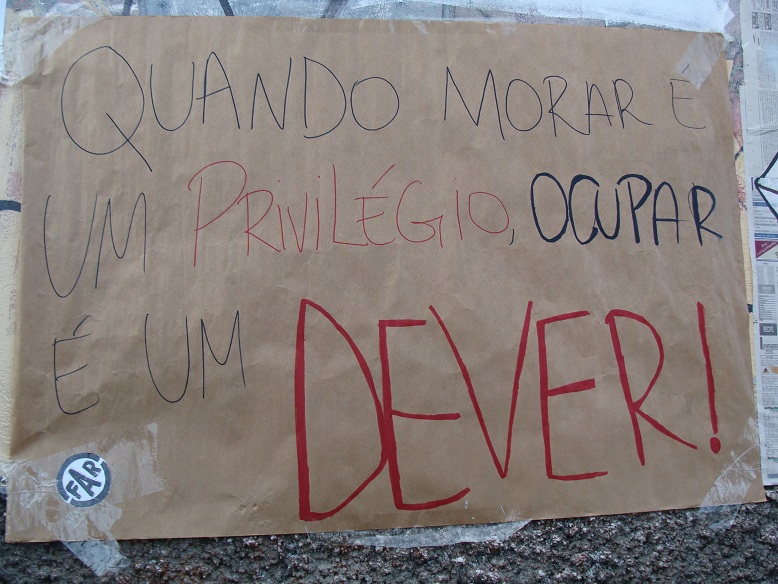 QUANDO MORAR É
UM PRIVILÉGIO, OCUPAR
É UM DEVER!
FAR